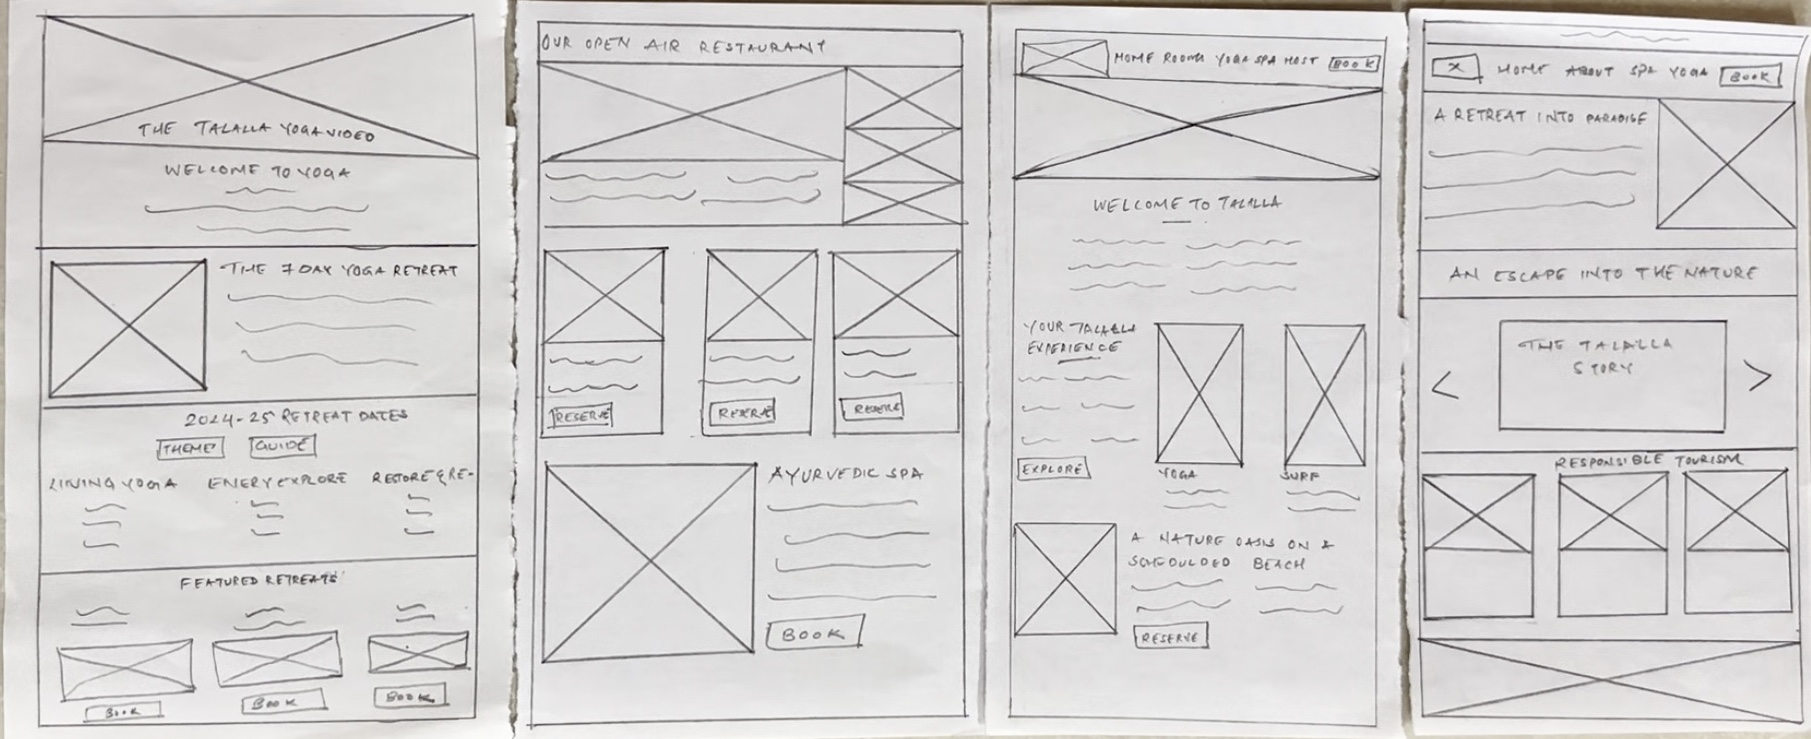 THE TALALLA YOGA VIDEO
WELCOME TO YOGA
THE 7 DAY YOGA RETREAT
2024-25 RETREAT DATES
THEME GUIDE
LINING YOGA ENERY EXPLORE RESTORE & RE-
FEATURED RETREATS
BOOK BOOK BOOK
OUR OPEN AIR RESTAURANT
RESERVE RESERVE RESERVE
AYURVEDIC SPA
BOOK
HOME ROOMS YOGA SPA HOST BOOK
WELCOME TO TALALLA
YOUR TALALLA
EXPERIENCE
EXPLORE
YOGA SURF
A NATURE OASIS ON A
SCHEDULDED BEACH
RESERVE
X HOME ABOUT SPA YOGA BOOK
A RETREAT INTO PARADISE
AN ESCAPE INTO THE NATURE
< THE TALALLA >
STORY
RESPONSIBLE TOURISM